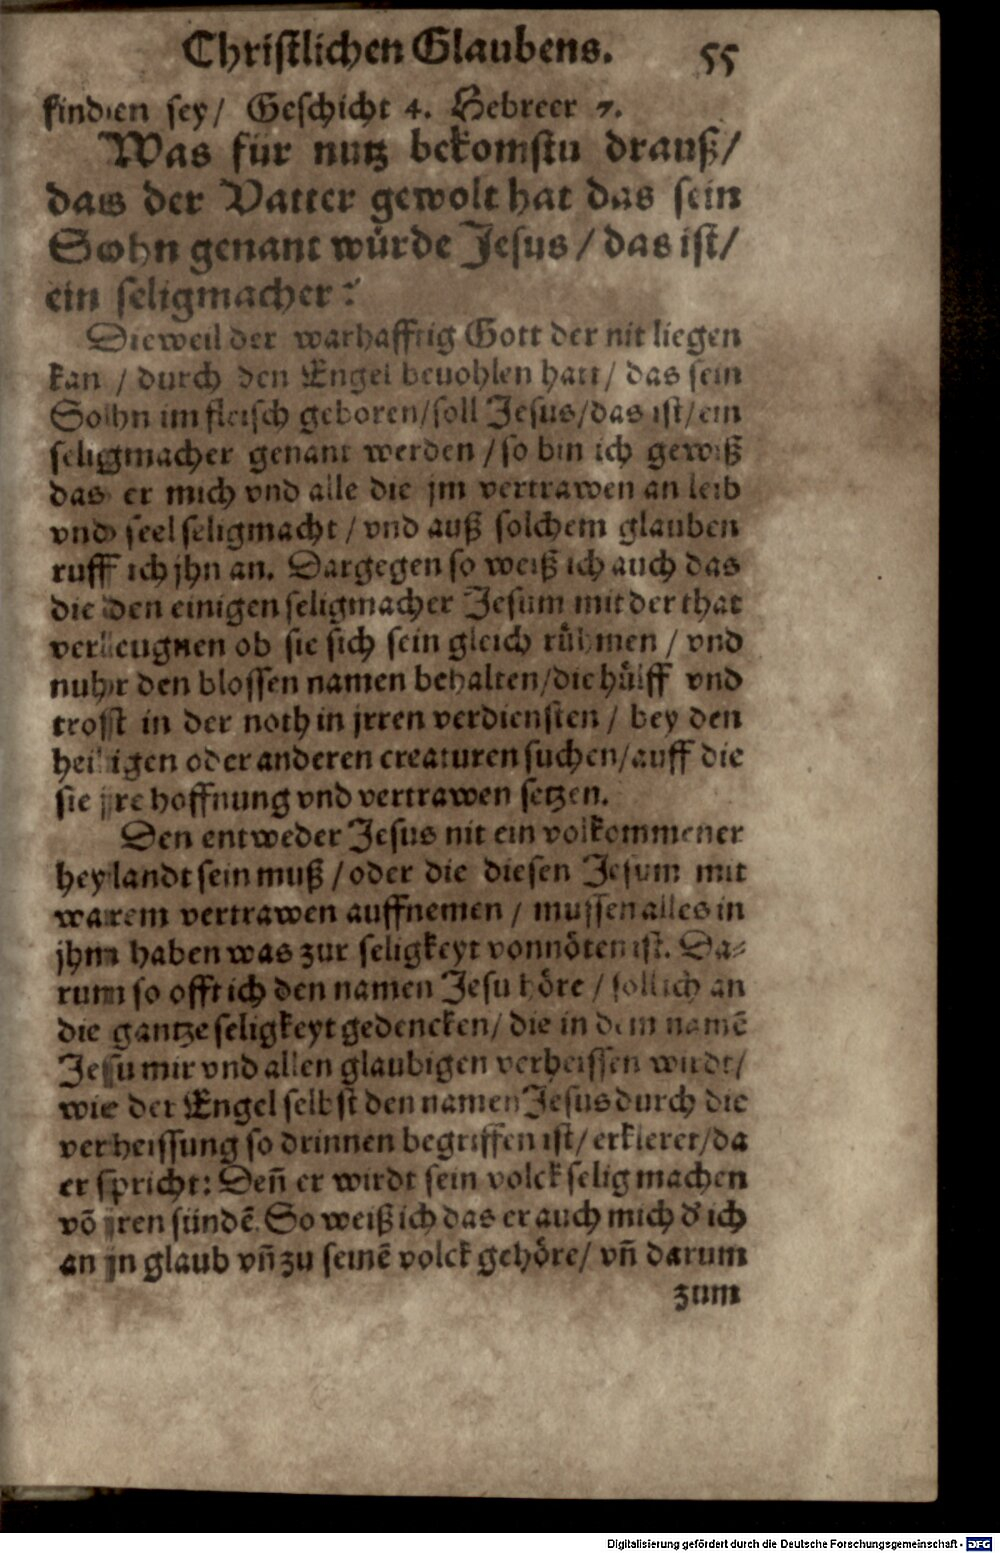 Christlichen Glaubens. 55
finden sey/ Geschicht 4. Hebreer 7.
Was für nutz bekomstu drauß/
das der Vatter gewolt hat das sein
Sohn genant würde Jesus/ das ist/
ein seligmacher?
Dieweil der warhafftig Gott der nit liegen
kan / durch den Engel beuohlen hatt/ das sein
Sohn im fleisch geboren/soll Jesus/das ist/ein
seligmacher genant werden /so bin ich gewiß
das er mich vnd alle die jm vertrawen an leib
vnd seel seligmacht / vnd auß solchem glauben
ruff ich jhn an. Dargegen so weiß ich auch das
die den einigen seligmacher Jesum mit der that
verleugnen ob sie sich sein gleich rühmen / vnd
nuhr den blossen namen behalten/die hülff vnd
trost in der noth in jrren verdiensten / bey den
heiligen oder anderen creaturen suchen/auff die
sie jre hoffnung vnd vertrawen setzen.
Den entweder Jesus nit ein volkommener
heylandt sein muß /oder die diesen Jesum mit
warem vertrawen auffnemen / mussen alles in
jhm haben was zur seligkeyt vonnöten ist. Da⸗
rum so offt ich den namen Jesu höre / soll ich an
die gantze seligkeyt gedencken/ die in dem namē
Jesu mir vnd allen glaubigen verheissen wirdt/
wie der Engel selbst den namen Jesus durch die
verheissung so drinnen begriffen ist/ erkleret/da
er spricht: Deñ er wirdt sein volck selig machen
vō jren sündē. So weiß ich das er auch mich d' ich
an jn glaub vñ zu seinē volck gehöre/ vñ darum
zum
Digitalisierung gefördert durch die Deutsche Forschungsgemeinschaft - DFG